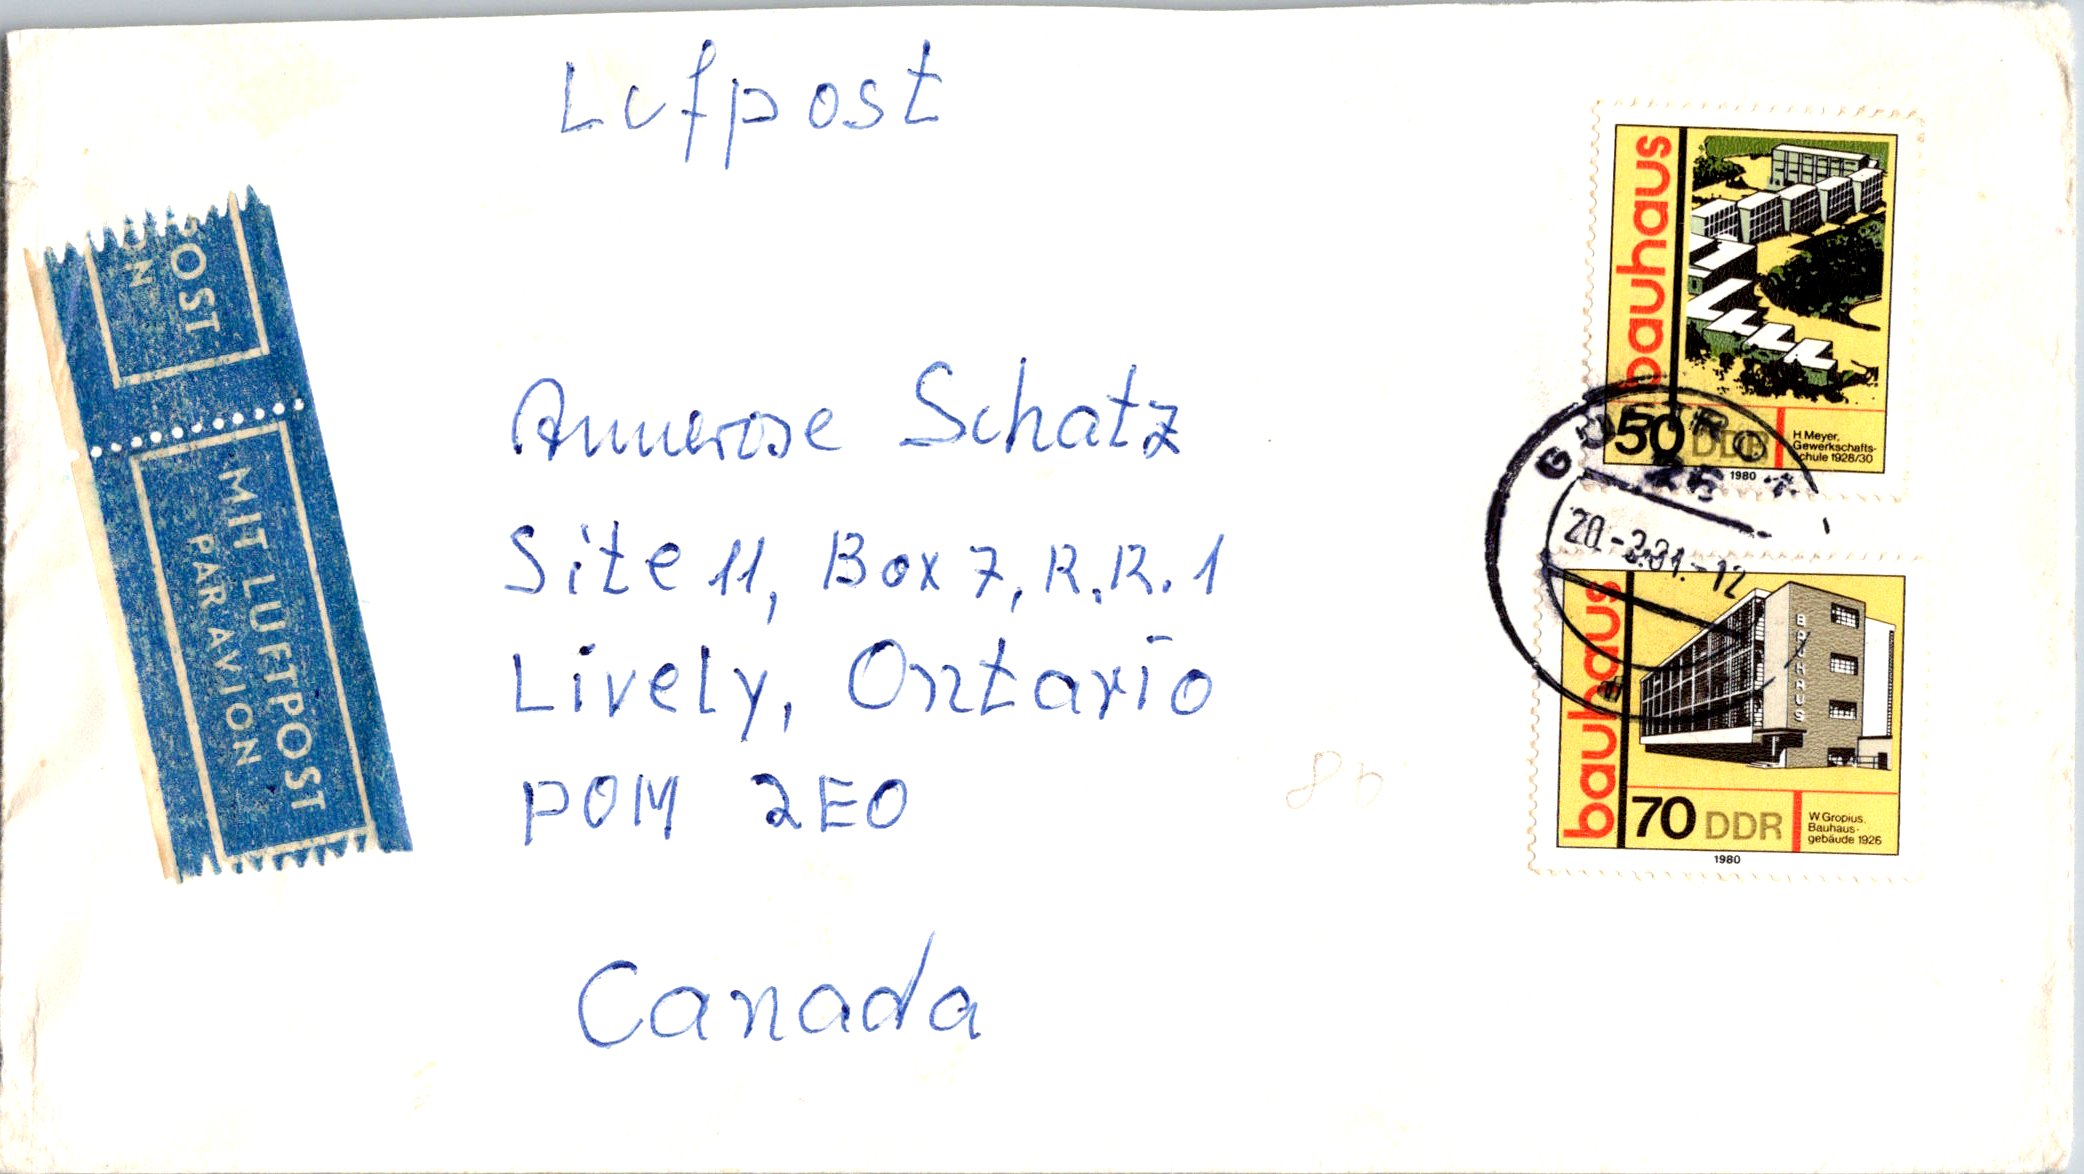 Lufpost
OST
ON
MIT LUFTPOST
PAR AVION
Annerose Schatz
Site 11, Box 7, R.R. 1
Lively, Ontario
POM 2EO
Canada
8b
bauhaus
50 DDR
H Meyer,
Gewerkschafts-
schule 1928/30
1980
20.-3.81.-12
bauhaus
BAUHAUS
70 DDR
W Gropius,
Bauhaus-
gebäude 1926
1980